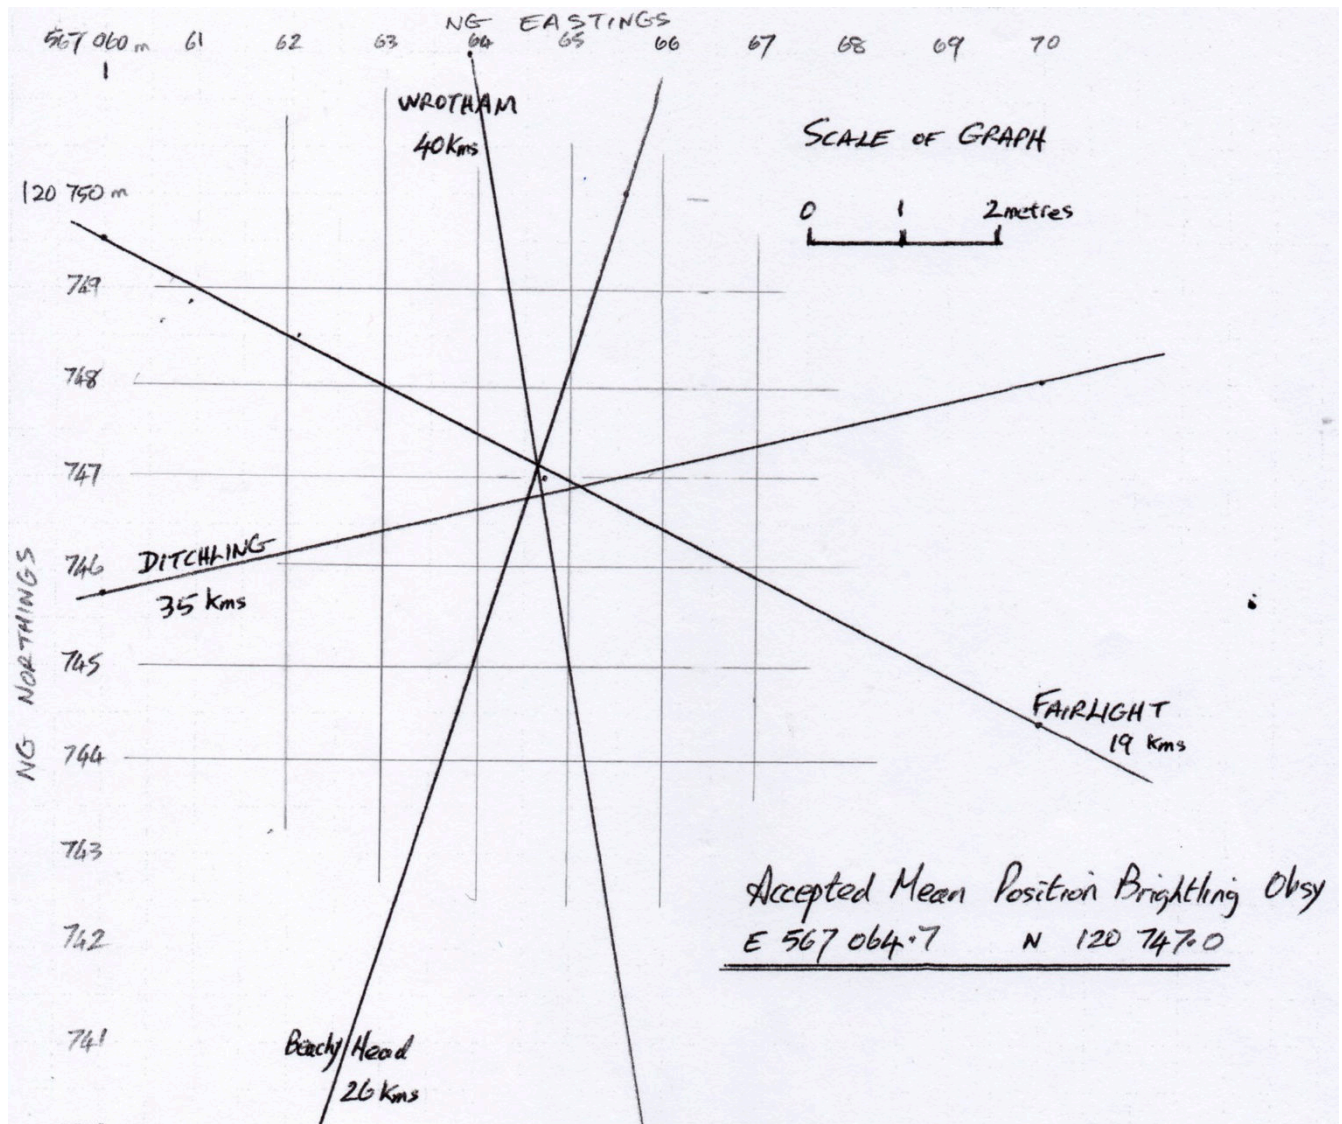 NG EASTINGS
567 060 m 61 62 63 64 65 66 67 68 69 70
WROTHAM
40 Kms
SCALE OF GRAPH
0 1 2 metres
120 750 m
749
748
747
746
745
744
743
742
741
NG NORTHINGS
DITCHLING
35 Kms
FAIRLIGHT
19 Kms
Accepted Mean Position Brightling Obsy
E 567 064.7 N 120 747.0
Beachy Head
26 Kms